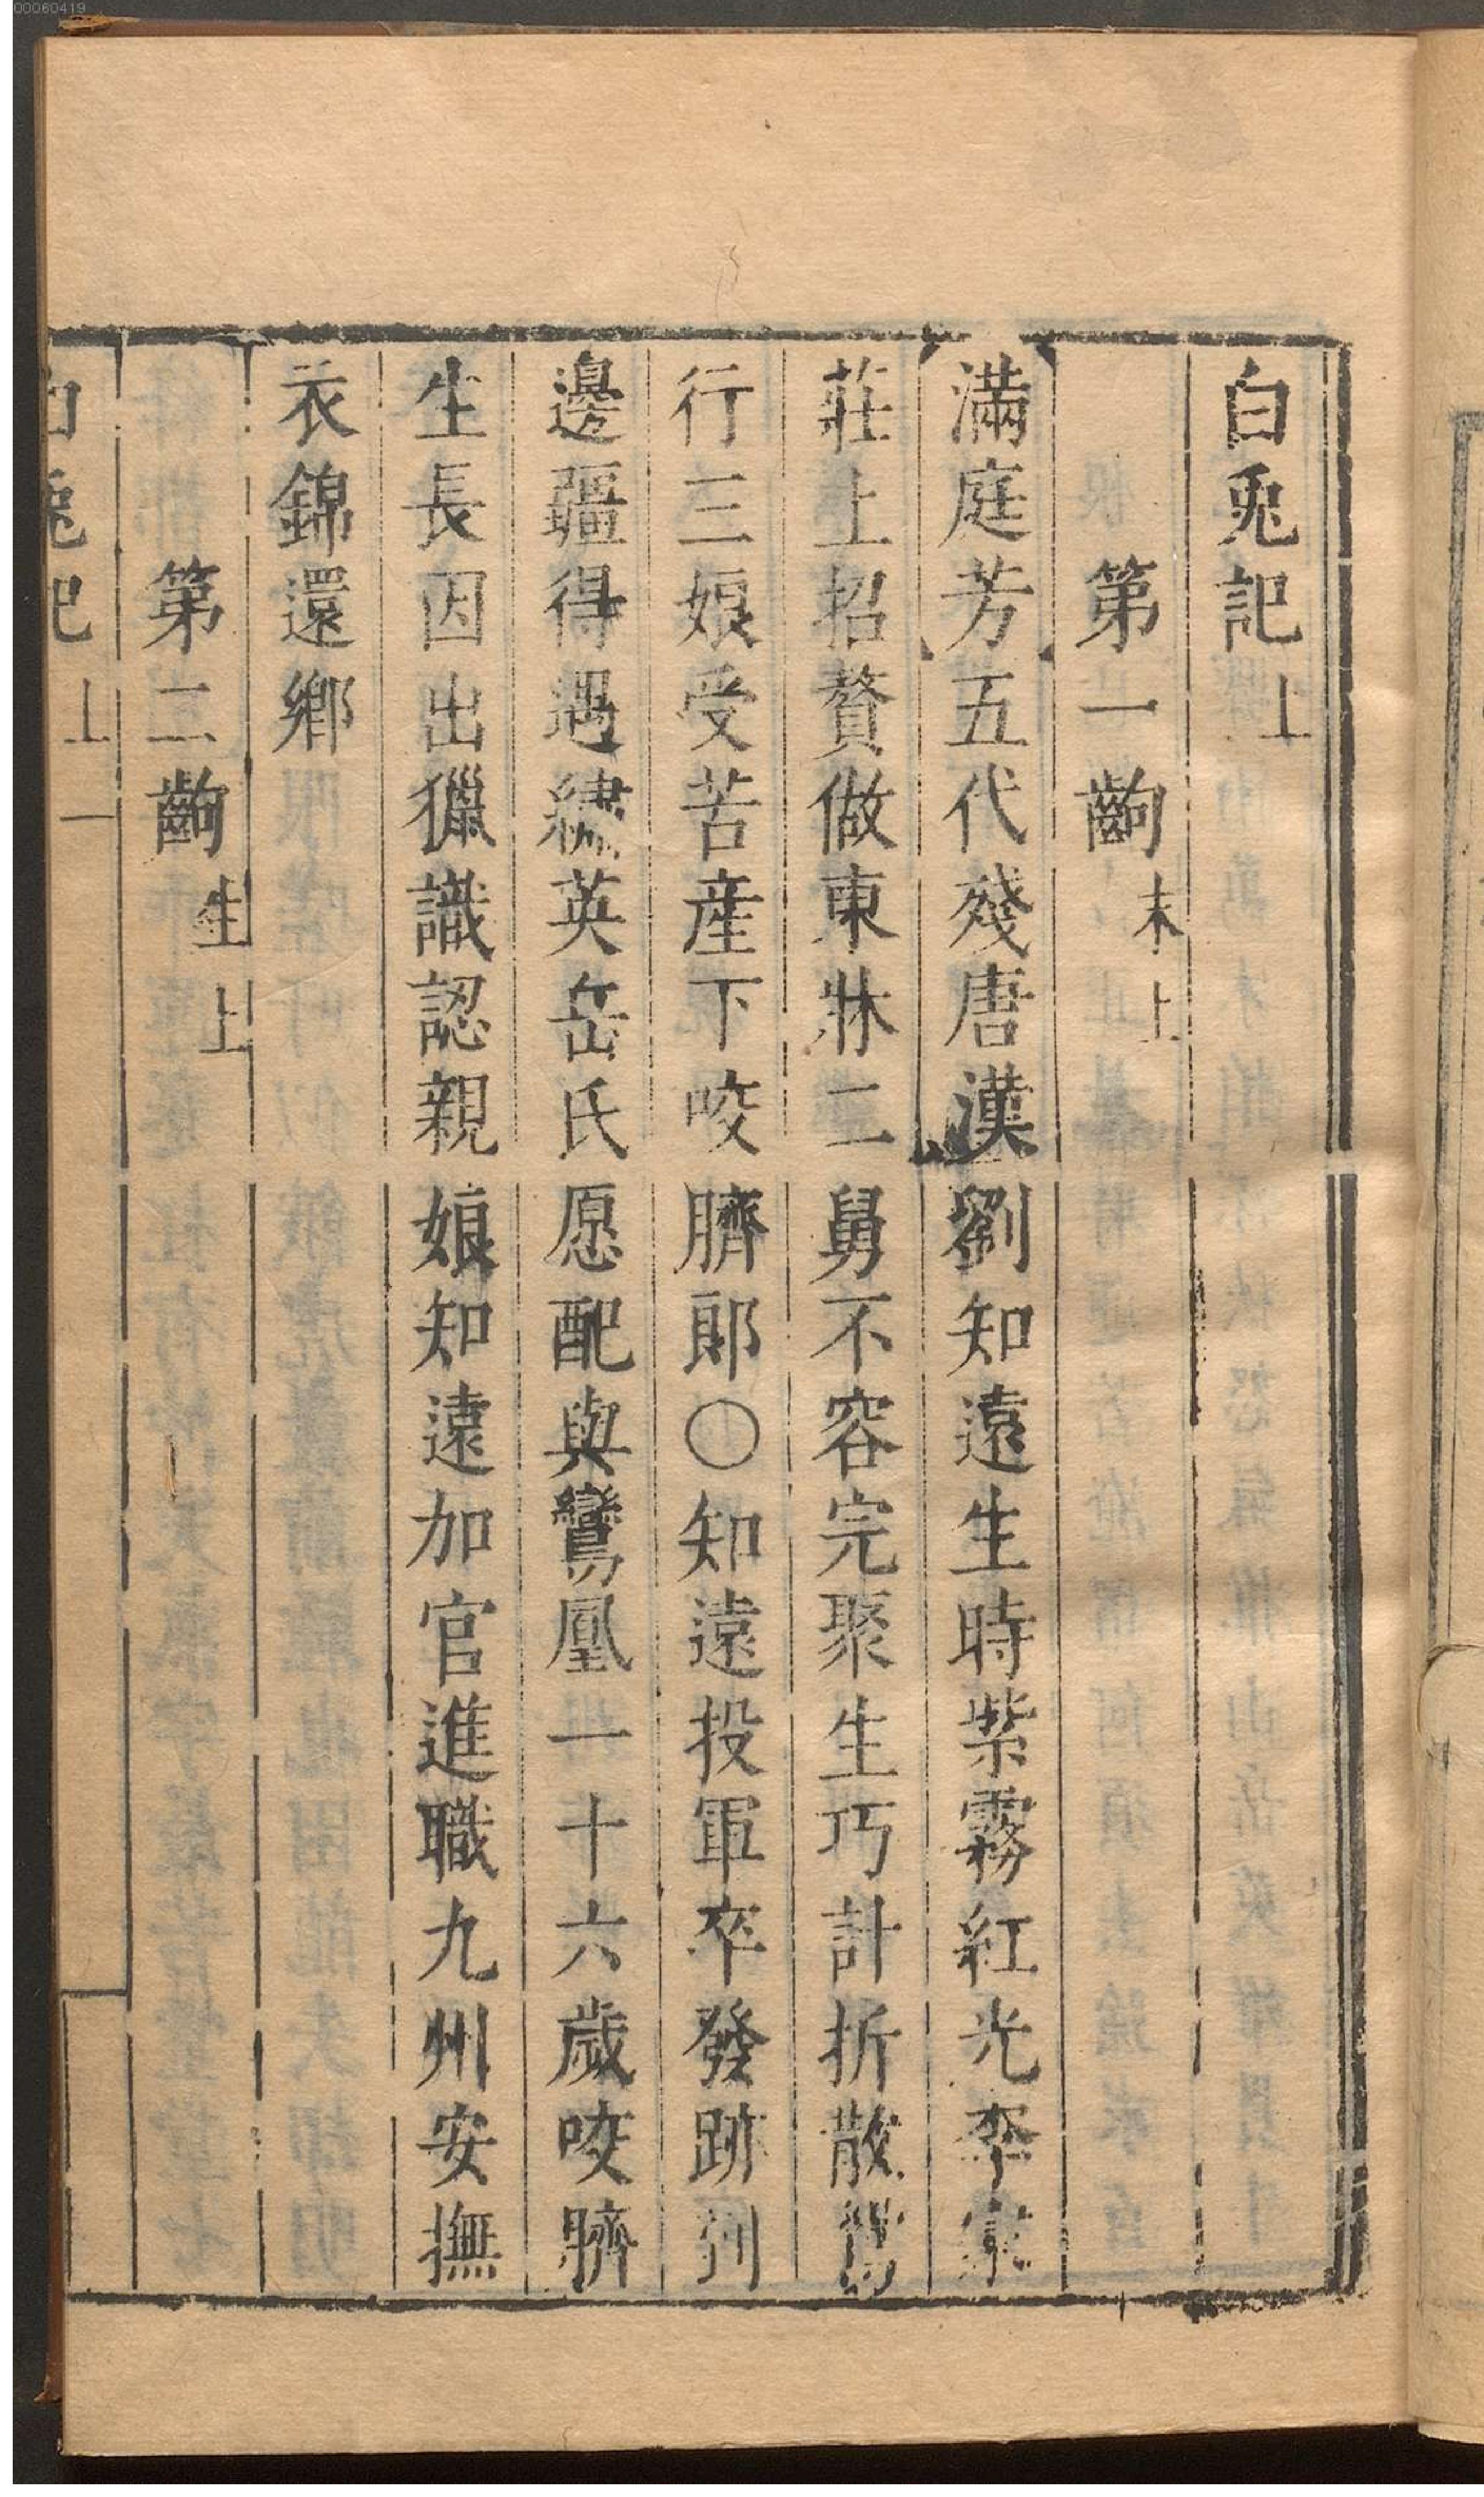 00060419
白兎記上
第一齣末上
滿庭芳五代殘唐漢劉知遠生時紫霧紅光李家
莊上招贅做東牀二舅不容完聚生巧計折散鴛
行三娘受苦産下咬臍郎○知遠投軍卒發跡到
邊疆得遇繡英岳氏愿配與鸞凰一十六歲咬臍
生長因出獵識認親娘知遠加官進職九州安撫
衣錦還鄉
第二齣生上
白兎記上一